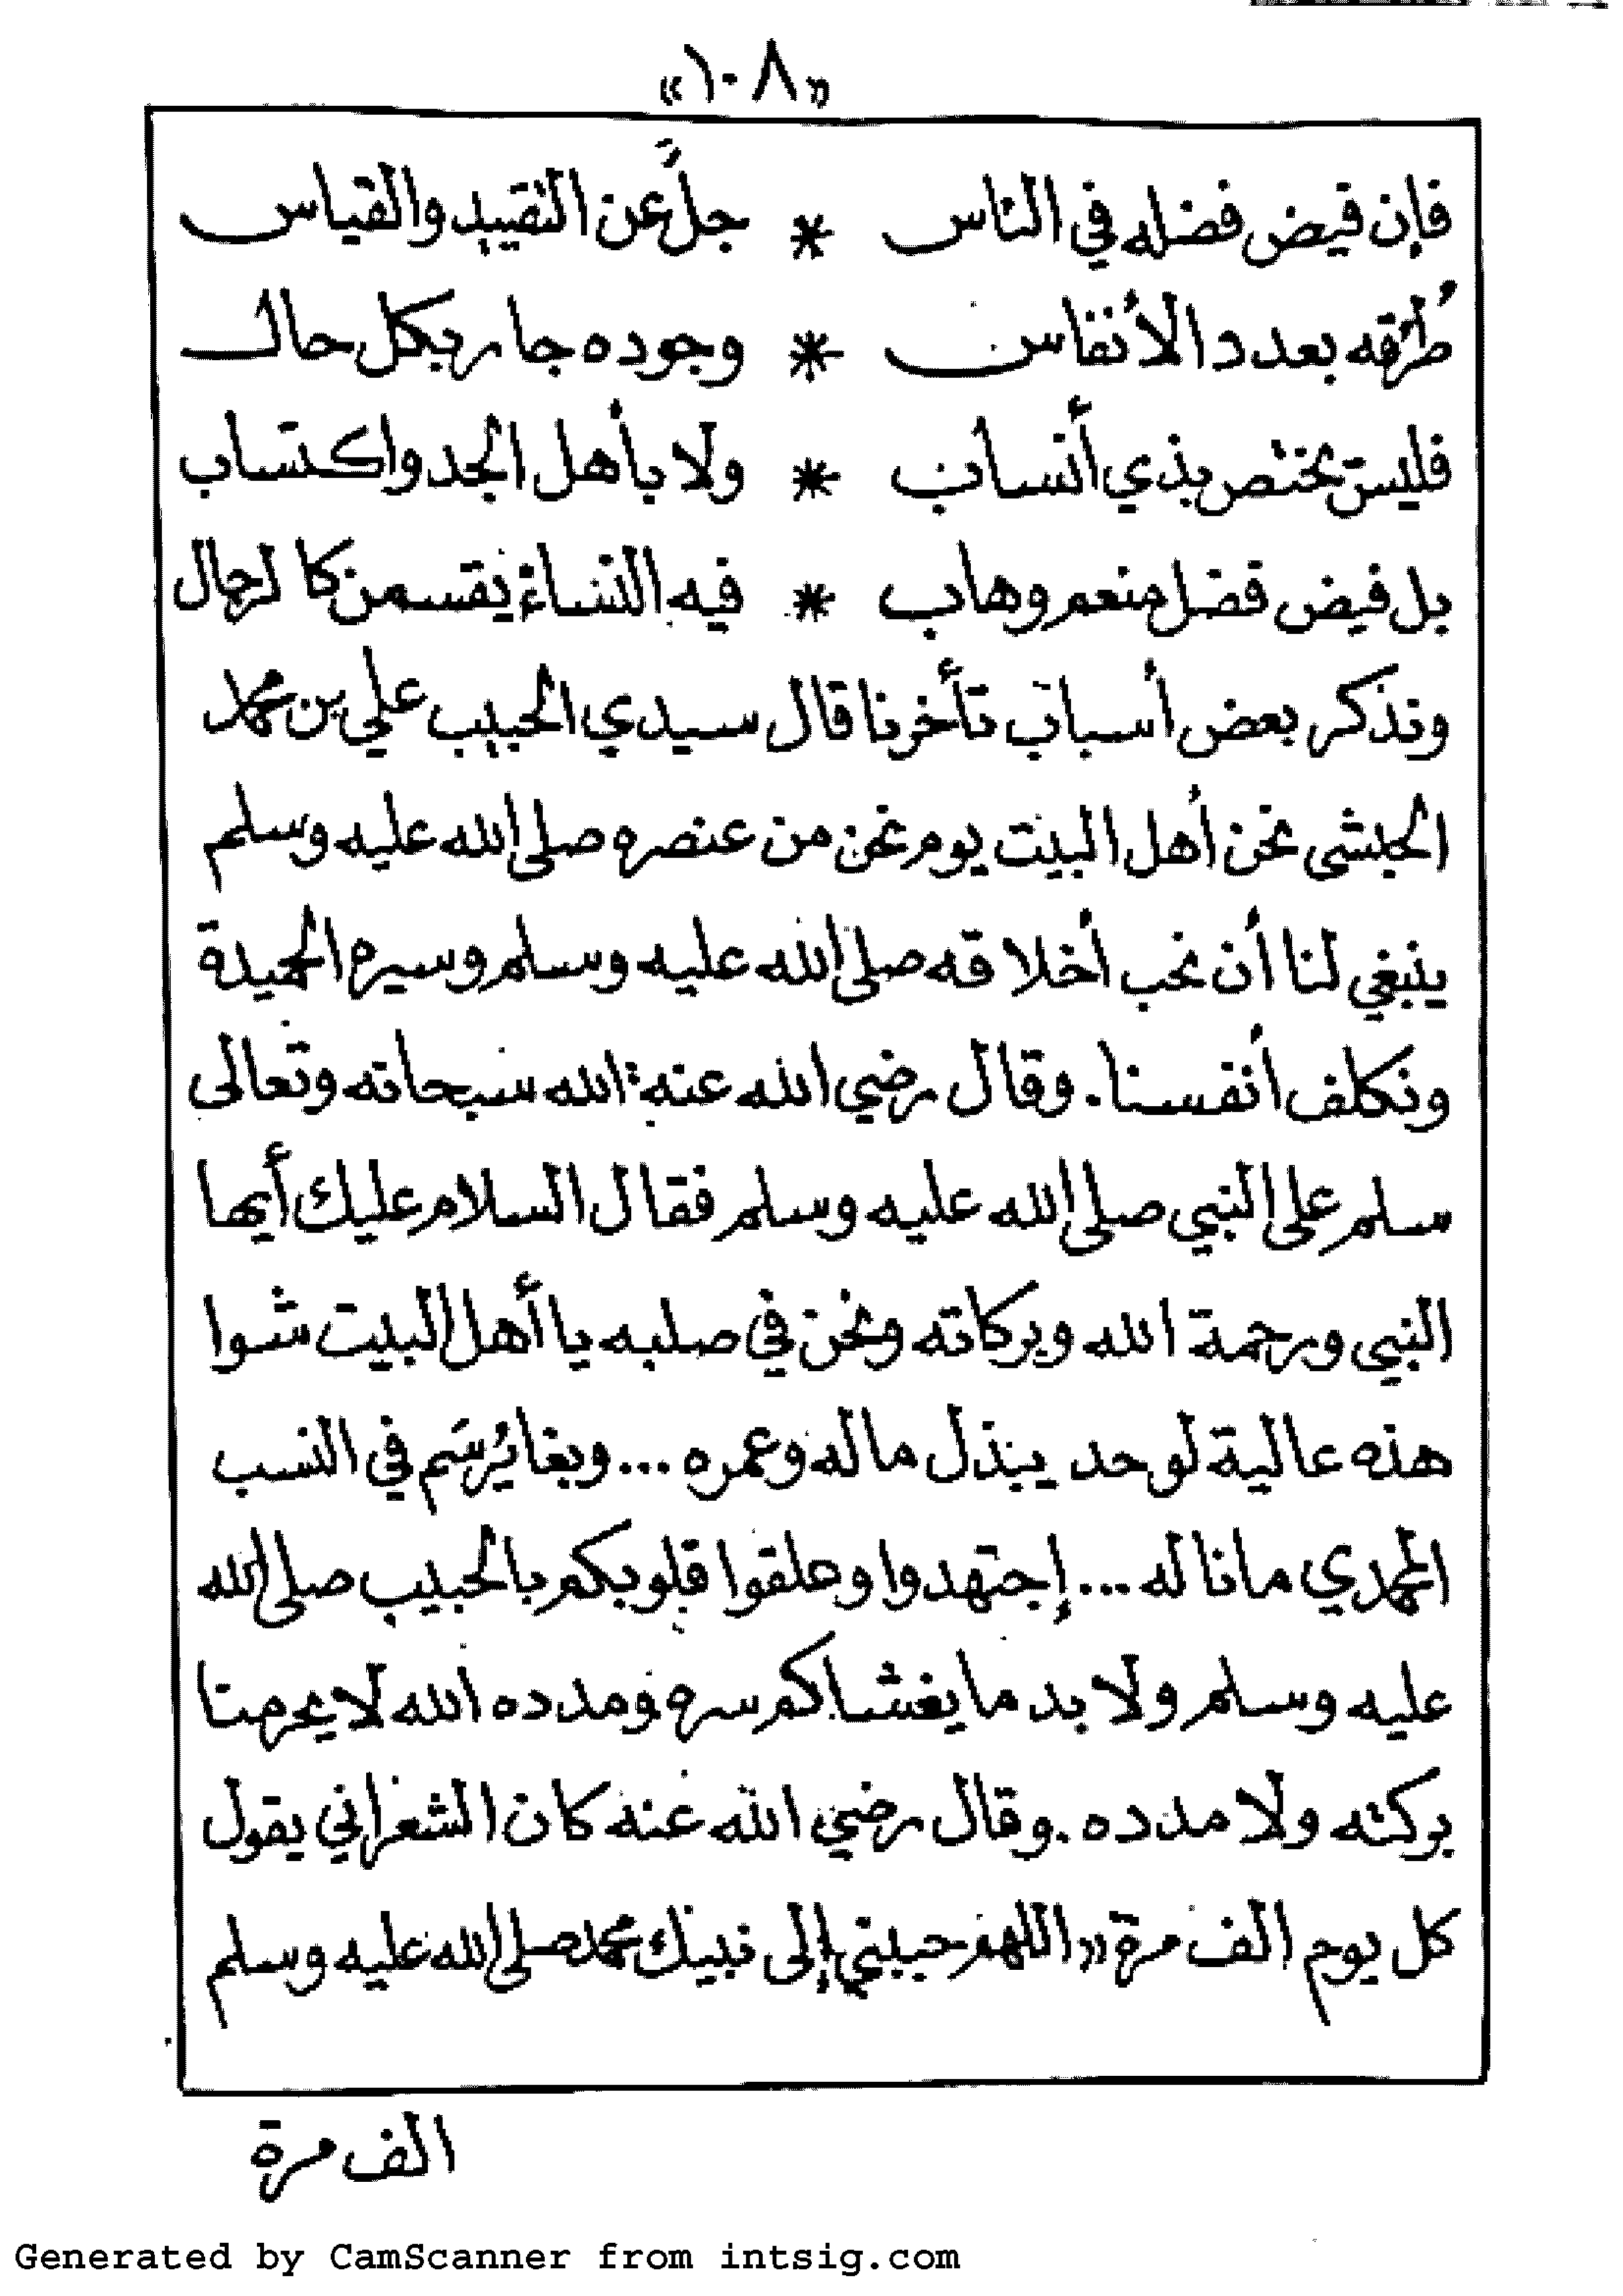 «١٠٨»
فإن فيض فضله في الناس * جلَّ عن التقييد والقياس
طُرْقه بعدد الأنفاس * وجوده جار بكل حال
فليس يختص بذي أنساب * ولا بأهل الجد واكتساب
بل فيض فضل منعم وهاب * فيه النساء يقسمن كالرجال
ونذكر بعض أسباب تأخرنا قال سيدي الحبيب علي بن محمد
الحبشي نحن أهل البيت يوم نحن من عنصره صلى الله عليه وسلم
ينبغي لنا أن نحب أخلاقه صلى الله عليه وسلم وسيره الحميدة
ونكلف أنفسنا. وقال رضي الله عنه: الله سبحانه وتعالى
سلم على النبي صلى الله عليه وسلم فقال السلام عليك أيها
النبي ورحمة الله وبركاته ونحن في صلبه يا أهل البيت شوا
هذه عالية لو حد يبذل ماله وعمره ... وبغا يُرسَم في النسب
المحمدي ما ناله ... إجتهدوا وعلقوا قلوبكم بالحبيب صلى الله
عليه وسلم ولا بد ما يغشاكم سره ومدده الله لا يحرمنا
بركته ولا مدده. وقال رضي الله عنه كان الشعراني يقول
كل يوم الف مرة «اللهم حببني إلى نبيك محمد صلى الله عليه وسلم
الف مرة
Generated by CamScanner from intsig.com